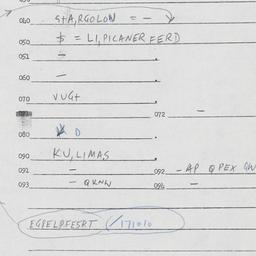 040 STA,RGOLON = -
050 $ = LI,PICANER FERD
051 -
060 -
070 VUGT
072 -
080 D
090 KU,LIMAS
091 -
092 - AP QPEX
093 - QKNW
096 -
EGPELPFESRT /171010